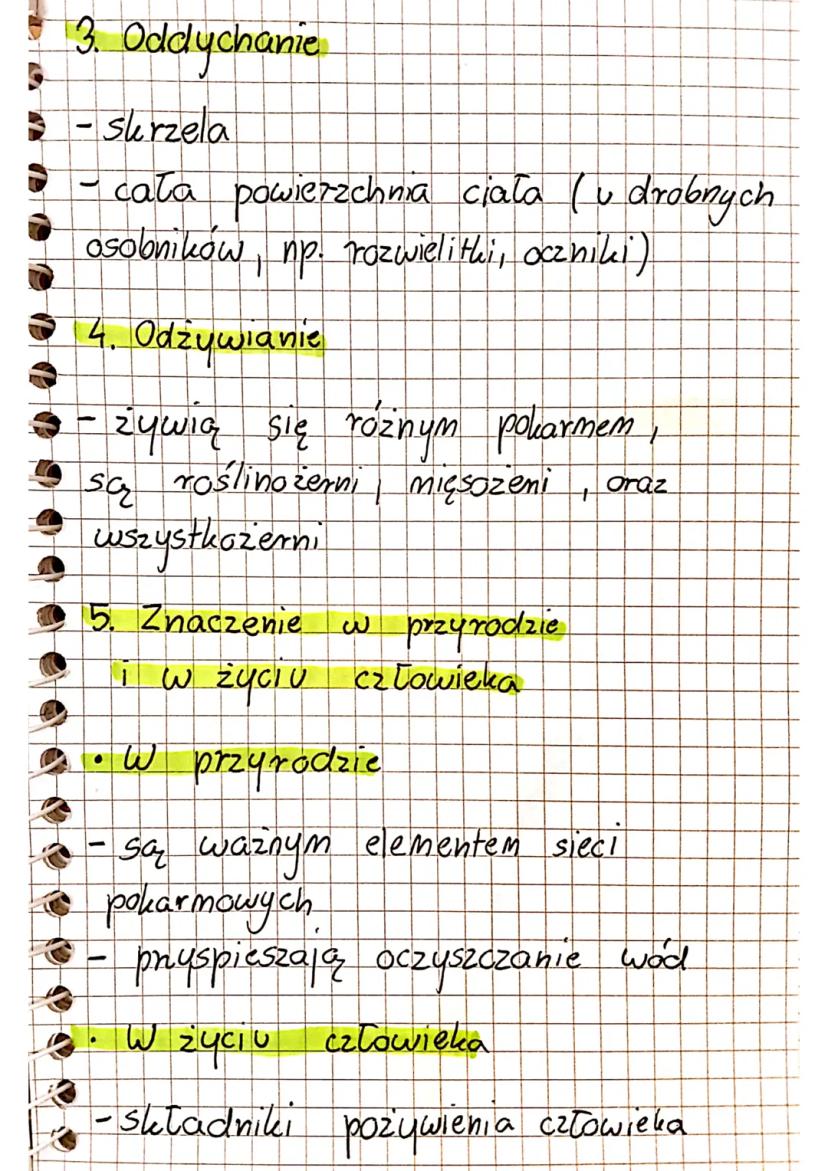 3. Oddychanie
- skrzela
- cała powierzchnia ciała (u drobnych
osobników, np. rozwielitki, oczniki)
4. Odżywianie
- żywią się różnym pokarmem,
są roślinożerni, mięsożeni, oraz
wszystkożerni
5. Znaczenie w przyrodzie
i w życiu człowieka
• W przyrodzie
- są ważnym elementem sieci
pokarmowych
- przyspieszają oczyszczanie wód
• W życiu człowieka
- składniki pożywienia człowieka